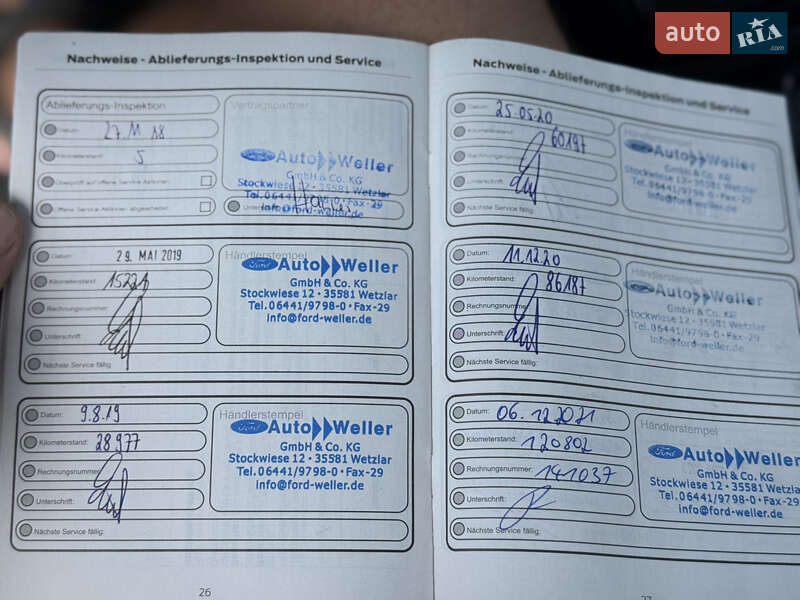 auto RIA .com
Nachweise - Ablieferungs-Inspektion und Service
Ablieferungs-Inspektion
Vertragspartner
Datum: 27.11.18
Kilometerstand: 5
Überprüft auf offene Service Aktionen:
offene Service Aktionen abgearbeitet:
Ford Auto Weller
GmbH & Co. KG
Stockwiese 12 • 35581 Wetzlar
Tel. 06441/9798-0 • Fax-29
info@ford-weller.de
Datum: 29. MAI 2019
Kilometerstand:
Rechnungsnummer:
Unterschrift:
Nächste Service fällig:
Händlerstempel
Ford Auto Weller
GmbH & Co. KG
Stockwiese 12 • 35581 Wetzlar
Tel. 06441/9798-0 • Fax-29
info@ford-weller.de
Datum: 9.8.19
Kilometerstand: 28977
Rechnungsnummer:
Unterschrift:
Nächste Service fällig:
Händlerstempel
Ford Auto Weller
GmbH & Co. KG
Stockwiese 12 • 35581 Wetzlar
Tel. 06441/9798-0 • Fax-29
info@ford-weller.de
26
Nachweise - Ablieferungs-Inspektion und Service
Datum: 25.05.20
Kilometerstand: 60197
Rechnungsnummer:
Unterschrift:
Nächste Service fällig:
Händlerstempel
Ford Auto Weller
GmbH & Co. KG
Stockwiese 12 • 35581 Wetzlar
Tel. 06441/9798-0 • Fax-29
info@ford-weller.de
Datum: 11.12.20
Kilometerstand: 86187
Rechnungsnummer:
Unterschrift:
Nächste Service fällig:
Händlerstempel
Ford Auto Weller
GmbH & Co. KG
Stockwiese 12 • 35581 Wetzlar
Tel. 06441/9798-0 • Fax-29
info@ford-weller.de
Datum: 06.12.2021
Kilometerstand: 120802
Rechnungsnummer: 141037
Unterschrift:
Nächste Service fällig:
Händlerstempel
Ford Auto Weller
GmbH & Co. KG
Stockwiese 12 • 35581 Wetzlar
Tel. 06441/9798-0 • Fax-29
info@ford-weller.de